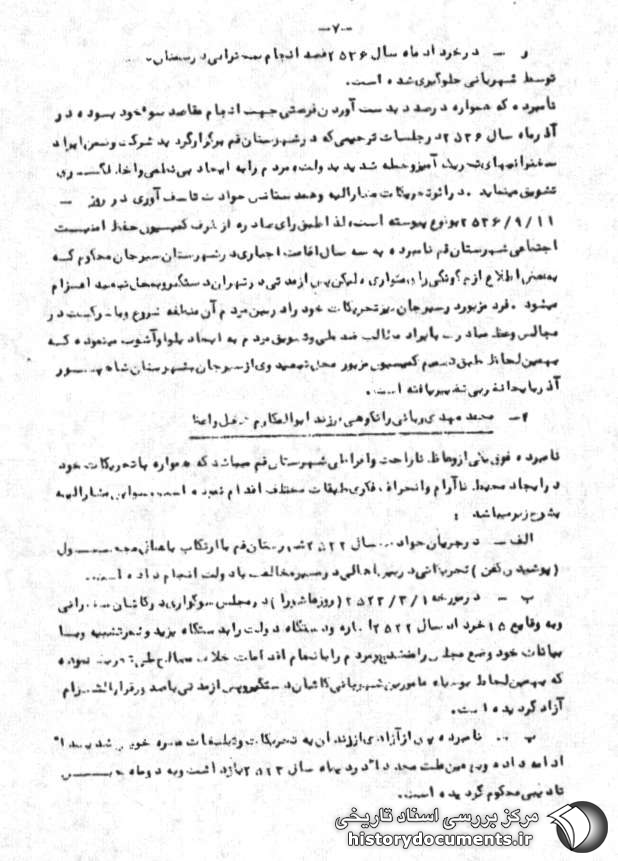 -۷-
و - درخرداد ماه سال ۲۵۳۶قصد انجام سخنرانی در رفسنجان
توسط شهربانی جلوگیری شده است.
نامبرده که همواره درصدد بدست آوردن فرصتی جهت انجام مقاصد سوء خود بوده در
آذرماه سال ۲۵۳۶ درجلسات ترحیمی که درشهرستان قم برگزارگردید شرکت وضمن ایراد
سخنرانیهای تحریک آمیز وحمله شدید بدولت، مردم را به ایجاد بی نظمی واخلالگری
تشویق مینماید . دراثر تحریکات مشارالیه و همدستانش حوادث تاسف آوری در روز -
۲۵۳۶/۹/۱۱ بوقوع پیوسته است، لذا طبق رای صادره از طرف کمیسیون حفظ امنیت
اجتماعی شهرستان قم نامبرده به سه سال اقامت اجباری درشهرستان سیرجان محکوم که
بمحض اطلاع از چگونگی رای متواری ولیکن پس از مدتی درتهران دستگیر وبمحل تبعید اعزام
میشود . فرد مزبور درسیرجان نیز تحریکات خود را در بین مردم آن منطقه شروع و با شرکت در
مجالس وعظ مبادرت بایراد مطالب ضد ملی وتشویق مردم به ایجاد بلوا وآشوب مینموده که
بهمین لحاظ طبق تصمیم کمیسیون مزبور محل تبعید وی از سیرجان بشهرستان شاهپور
آذربایجان غربی تغییر یافته است.
۴- محمد مهدی ربانی رانکوهی فرزند ابوالمکارم شغل واعظ
نامبرده فوق یکی از وعاظ ناراحت وافراطی شهرستان قم میباشد که همواره با تحریکات خود
در ایجاد محیط ناآرام وانحراف فکری طبقات مختلف اقدام نموده است سوابق مشارالیه
بشرح زیر میباشد :
الف - درجریان حوادث سال ۲۵۲۲ شهرستان قم با ارتکاب باعمال غیر معمول
(پوشیدن کفن) تحریکاتی دربین اهالی درمسیر مخالفت با دولت انجام داده است.
ب - درمورخه ۲۵۲۲/۳/۱ (روزعاشورا) درمجلس سوگواری درکاشان سخنرانی
وبه وقایع ۱۵خرداد سال ۲۵۲۲ اشاره ودستگاه دولت را بدستگاه یزید وشمر تشبیه وبا
بیانات خود وضع مجلس را متشنج ومردم را بانجام اقدامات خلاف مصالح ملی تحریک نموده
که بهمین لحاظ بوسیله مامورین شهربانی کاشان دستگیر وپس از مدتی باصدور قرار التزام
آزاد گردیده است.
پ - نامبرده پس از آزادی از زندان به تحریکات وتبلیغات مضره خویش شدیدا"
ادامه داده وبهمین علت مجددا" دردیماه سال ۲۵۲۳ بازداشت وبه دوماه حبس
تادیبی محکوم گردیده است.
مرکز بررسی اسناد تاریخی
historydocuments.ir